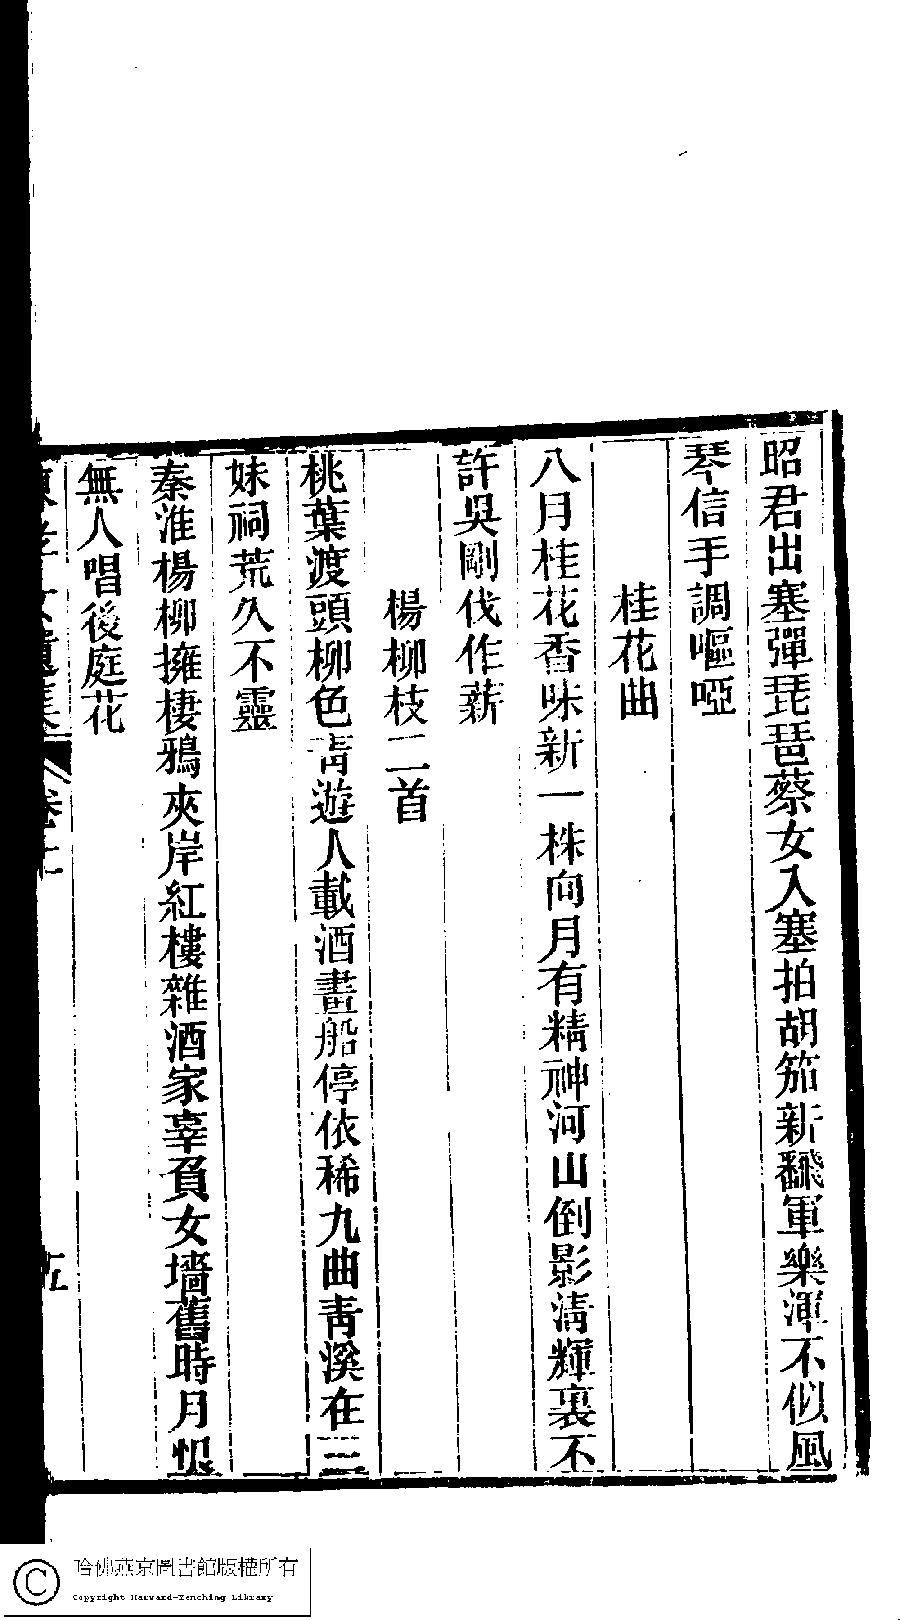 昭君出塞彈琵琶蔡女入塞拍胡笳新飜軍樂渾不似風
琴信手調嘔啞
桂花曲
八月桂花香味新一株向月有精神河山倒影清輝裏不
許吳剛伐作薪
楊柳枝二首
桃葉渡頭柳色青遊人載酒畫船停依稀九曲青溪在三
妹祠荒久不靈
秦淮楊柳擁棲鴉夾岸紅樓雜酒家辜負女墻舊時月恨
無人唱後庭花
女遺集 卷上
五
哈佛燕京圖書館版權所有
Copyright Harvard-Yenching Library